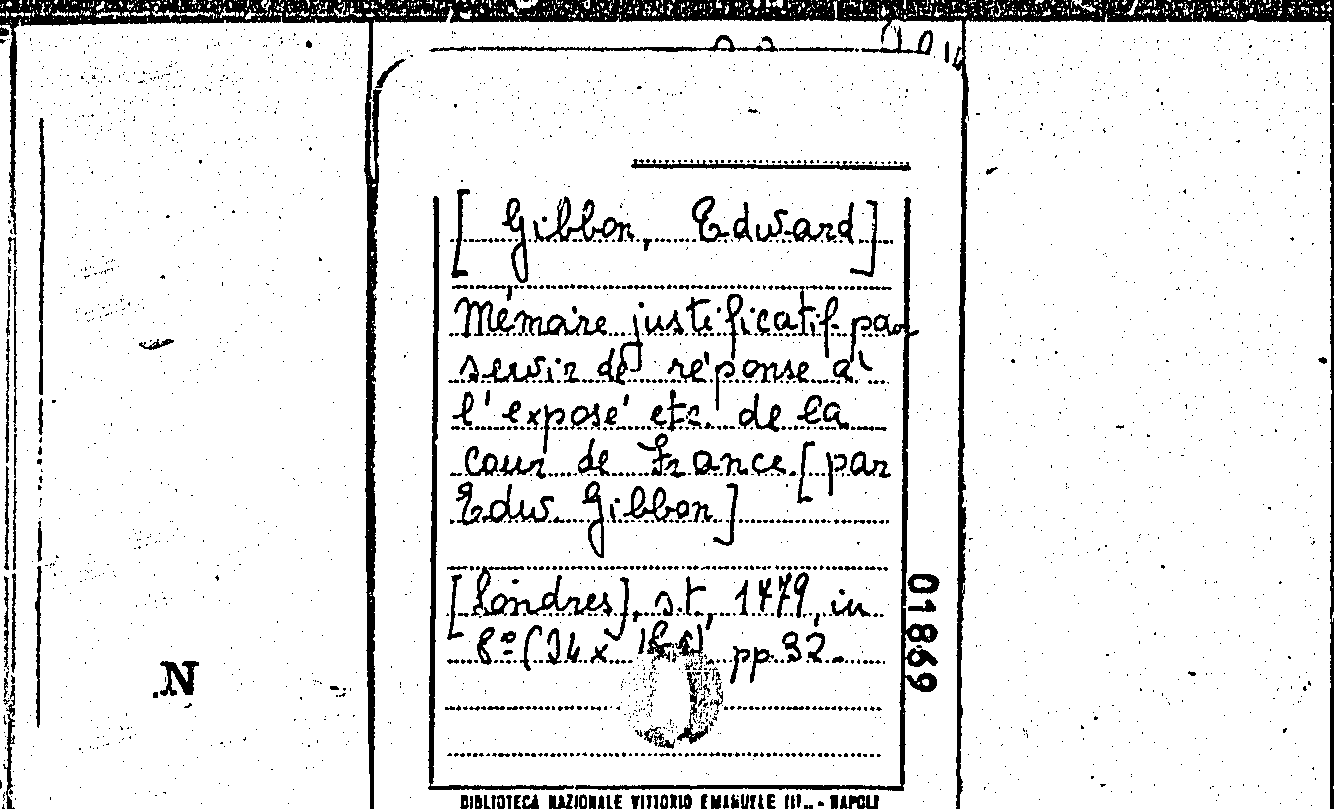 [Gibbon, Edward]
Mémoire justificatif par
servir de réponse à
l'exposé etc. de la
cour de France [par
Edw. Gibbon]
[Londres], s.t, 1779, in
8º (24 x pp. 32.
01869
N.
BIBLIOTECA NAZIONALE VITTORIO EMANUELE III. - NAPOLI